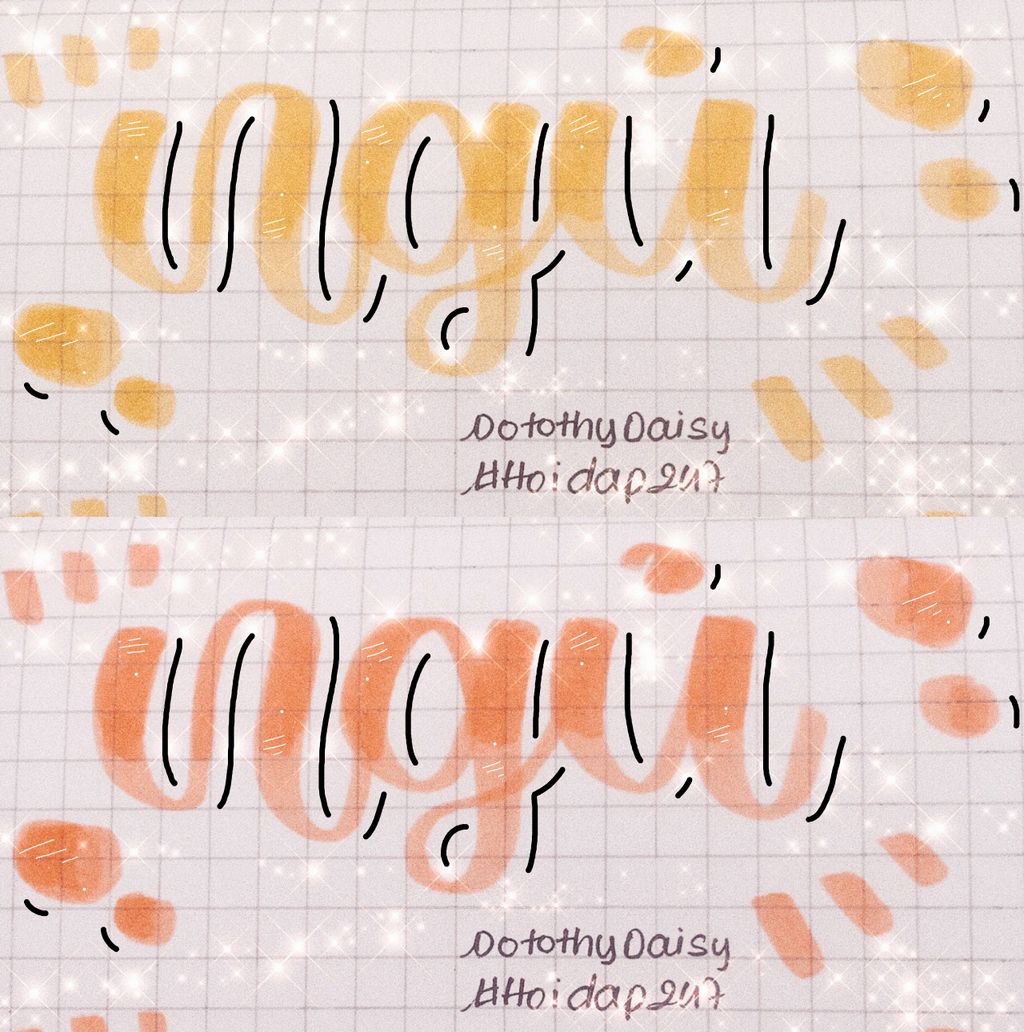 ngủ
Dotothy Daisy
#Hoidap247
ngủ
Dotothy Daisy
#Hoidap247